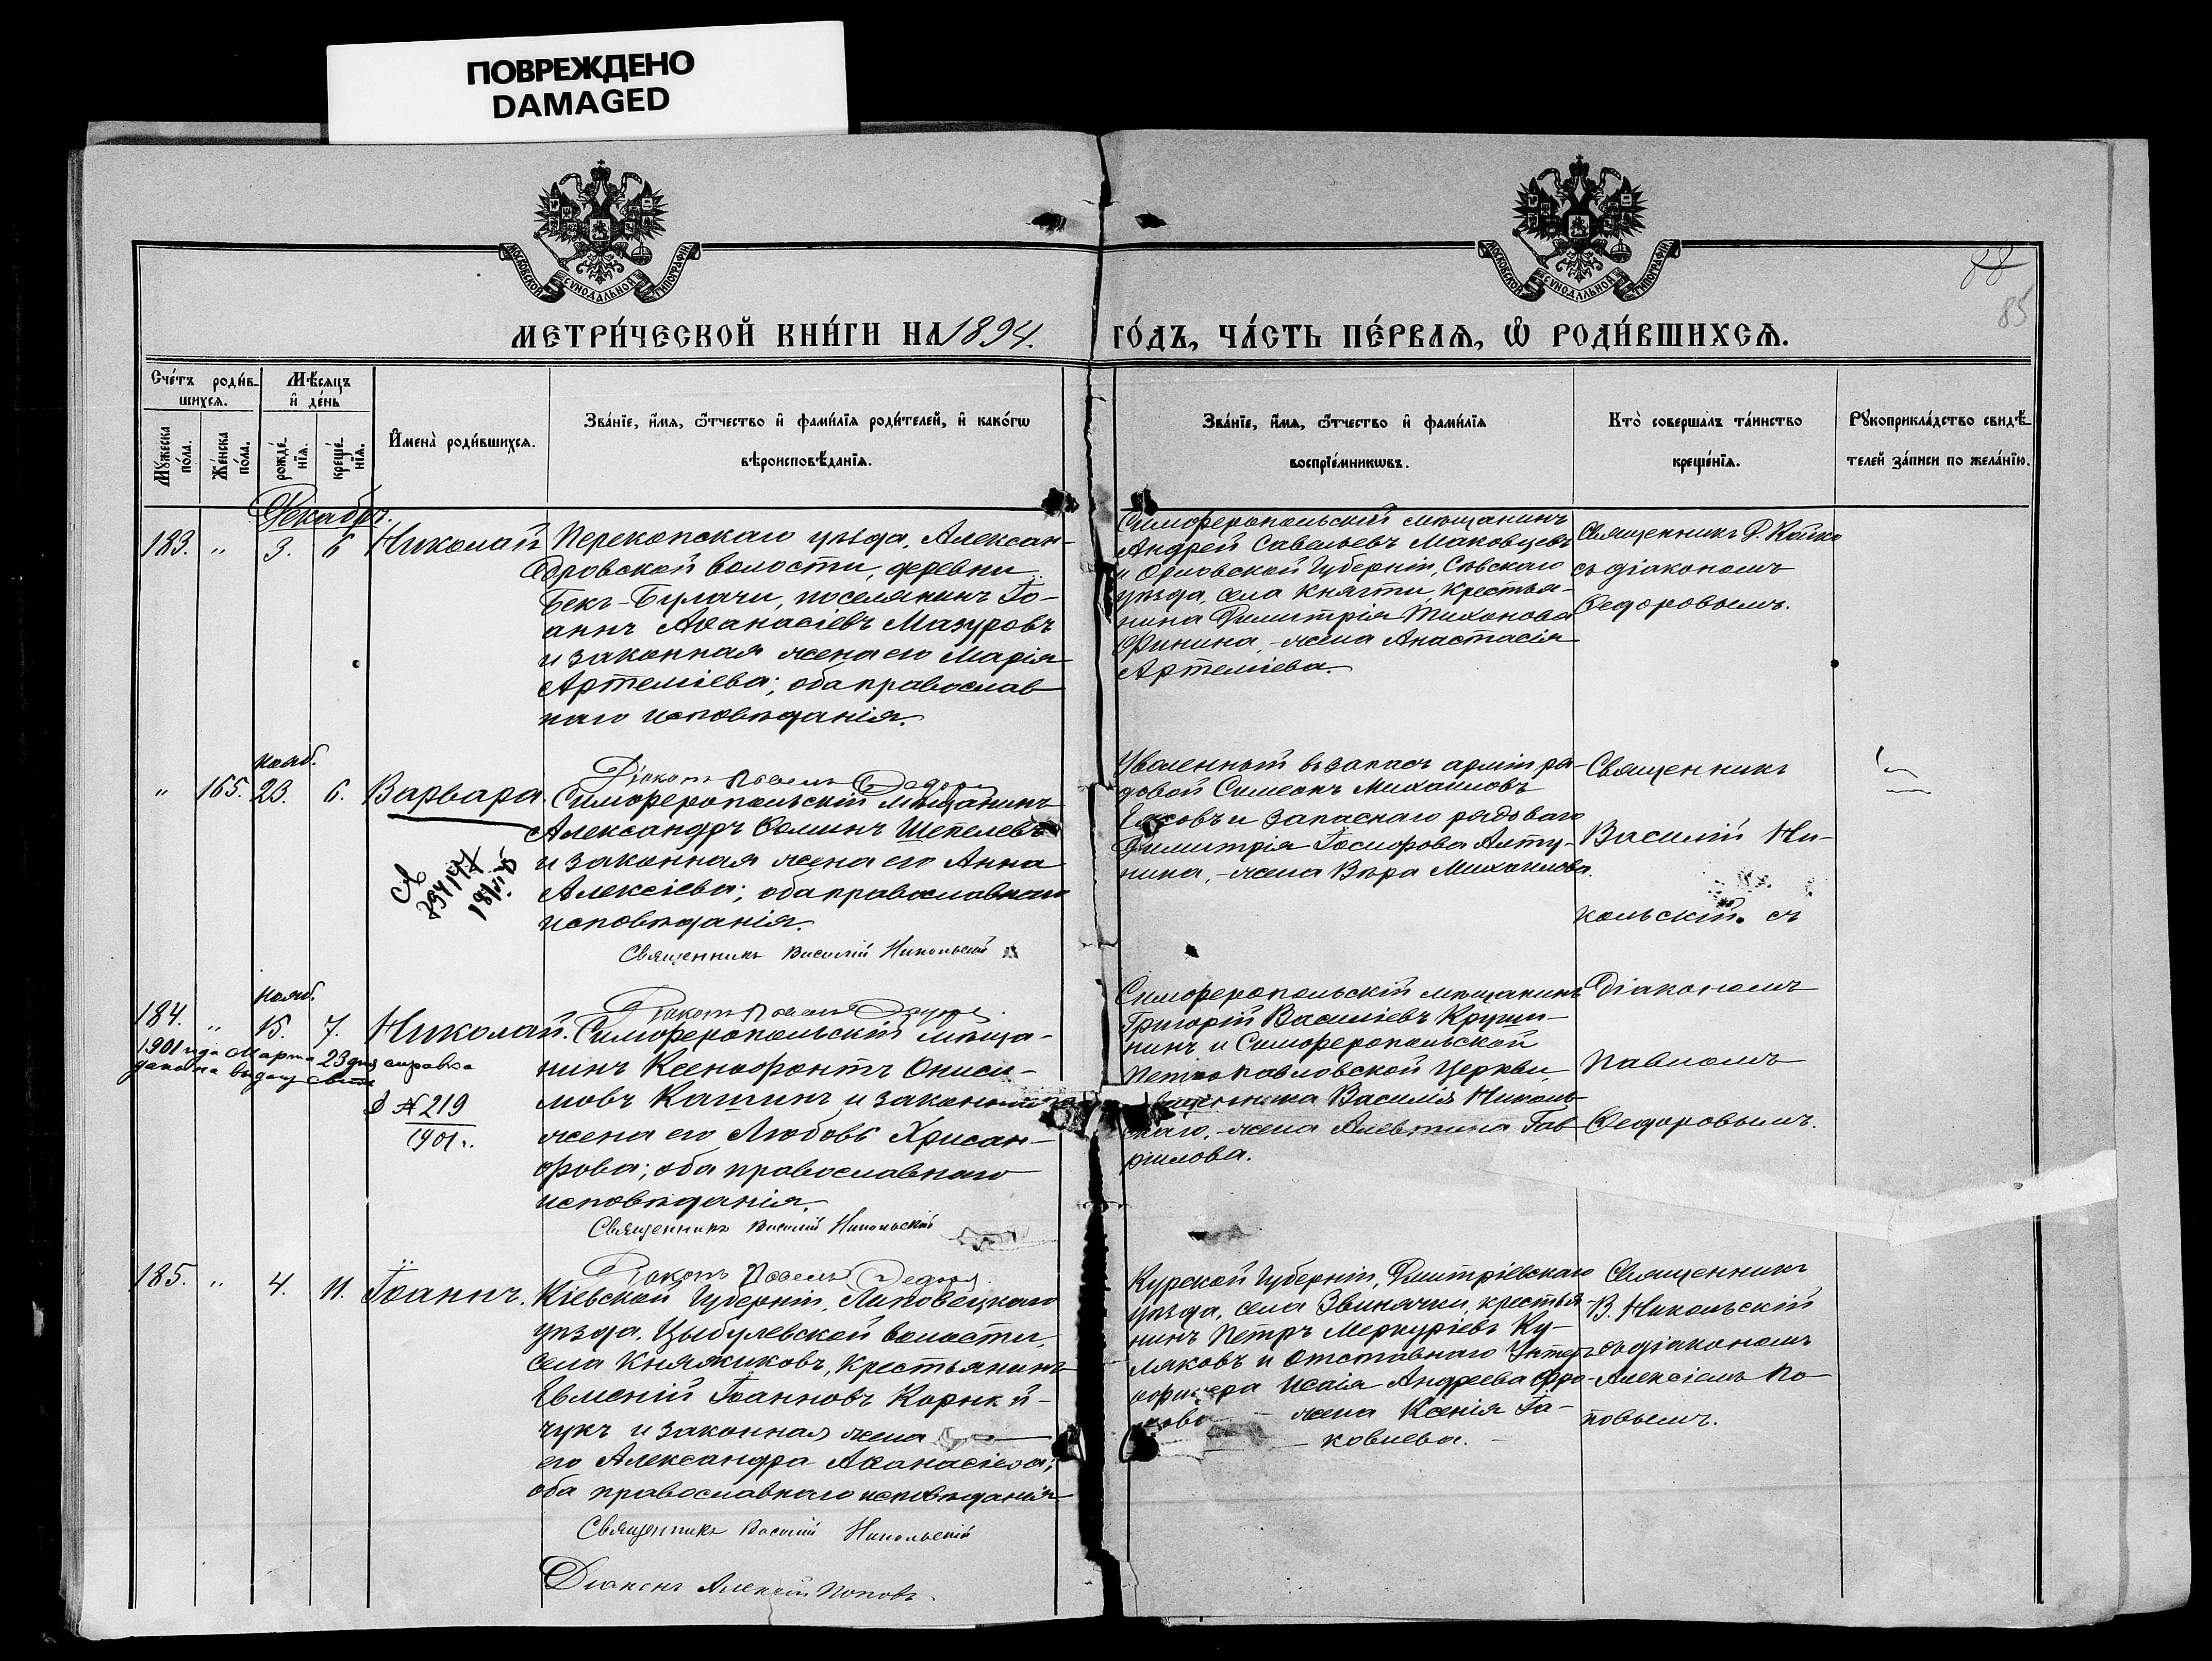 ПОВРЕЖДЕНО
DAMAGED
МОСКОВСКОЙ СѴНОДАЛЬНОЙ ТИПОГРАФІИ
МОСКОВСКОЙ СѴНОДАЛЬНОЙ ТИПОГРАФІИ
88
85
МЕТРИ́ЧЕСКОЙ КНИ́ГИ НА 1894. ГО́ДЪ, ЧА́СТЬ ПЕ́РВАѦ, Ѡ҆ РОДИ́ВШИХСѦ.
Сче́тъ роди́в-
шихсѧ.
Мꙋ́жеска по́ла.
Же́нска по́ла.
Мѣ́сѧцъ
и҆ де́нь
рожде́нїѧ.
креще́нїѧ.
И҆мена̀ роди́вшихсѧ.
Зва́нїе, и҆́мѧ, ѻ҆́тчество и҆ фами́лїѧ роди́телей, и҆ како́гѡ
вѣроисповѣ́данїѧ.
Зва́нїе, и҆́мѧ, ѻ҆́тчество и҆ фами́лїѧ
воспрїе́мникѡвъ.
Кто̀ соверша́лъ та́инство
креще́нїѧ.
Рꙋкоприкла́дство свидѣ́-
телей за́писи по жела́нїю.
Декабрь.
183. " 3. 6 Николай
Перекопскаго уѣзда, Алексан-
дровской волости, деревни
Бекъ-Булачи, поселянинъ Іо-
аннъ Аѳанасіевъ Мазуровъ
и законная жена его Марія
Артеміева; оба православ-
наго исповѣданія.
Симферопольскій мѣщанинъ
Андрей Савельевъ Маковцевъ
и Орловской Губерніи, Сѣвскаго
уѣзда, села Княгини, крестья-
нина Димитрія Тихонова
Финина, - жена Анастасія
Артеміева.
Священникъ Д. Койко
съ діакономъ
Ѳедоровымъ.
Діаконъ Павелъ Ѳедоровъ
нояб.
" 165. 23. 6. Варвара
Симферопольскій мѣщанинъ
Александръ Ѳоминъ Шепелевъ
и законная жена его Анна
Алексіева; оба православнаго
исповѣданія.
Священникъ Василій Никольскій
Уволенный въ запасъ арміи ря-
довой Симеонъ Михаиловъ
и запаснаго рядоваго
Димитрія Іосифова Алту-
нина, - жена Вѣра Михаилова.
Священникъ
Василій Ни-
кольскій съ
Діаконъ Павелъ Ѳедоровъ
нояб.
184. " 15. 7. Николай.
1901 года Марта 23 дня справка
дана на выдачу
№ 219
1901 г.
Симферопольскій мѣща-
нинъ Ксенофонтъ Ониси-
мовъ Кашинъ и законная
жена его Любовь Хрисан-
фова; оба православнаго
исповѣданія.
Священникъ Василій Никольскій
Симферопольскій мѣщанинъ
Григорій Василіевъ Круши-
нинъ и Симферопольской
Петропавловской Церкви,
священника Василія Николь-
скаго, - жена Алевтина Гав-
риилова.
Діакономъ
Павломъ
Ѳедоровымъ.
Діаконъ Павелъ Ѳедоровъ
185. " 4. 11. Іоаннъ.
Кіевской Губерніи, Липовецкаго
уѣзда, Цыбулевской волости,
села Княжиковъ, крестьянинъ
Евменій Іоанновъ Корній-
чукъ и законная жена
его Александра Аѳанасіева;
оба православнаго исповѣданія
Священникъ Василій Никольскій
Діаконъ Алексій Поповъ.
Курской Губерніи, Дмитріевскаго
уѣзда, села Звинячки, крестья-
нинъ Петръ Меркуріевъ Ку-
ляковъ и отставнаго Унтеръ-
офицера Исаія Андреева
жена Ксенія Іа-
ковлева.
Священникъ
В. Никольскій
съ діакономъ
Алексіемъ По-
повымъ.